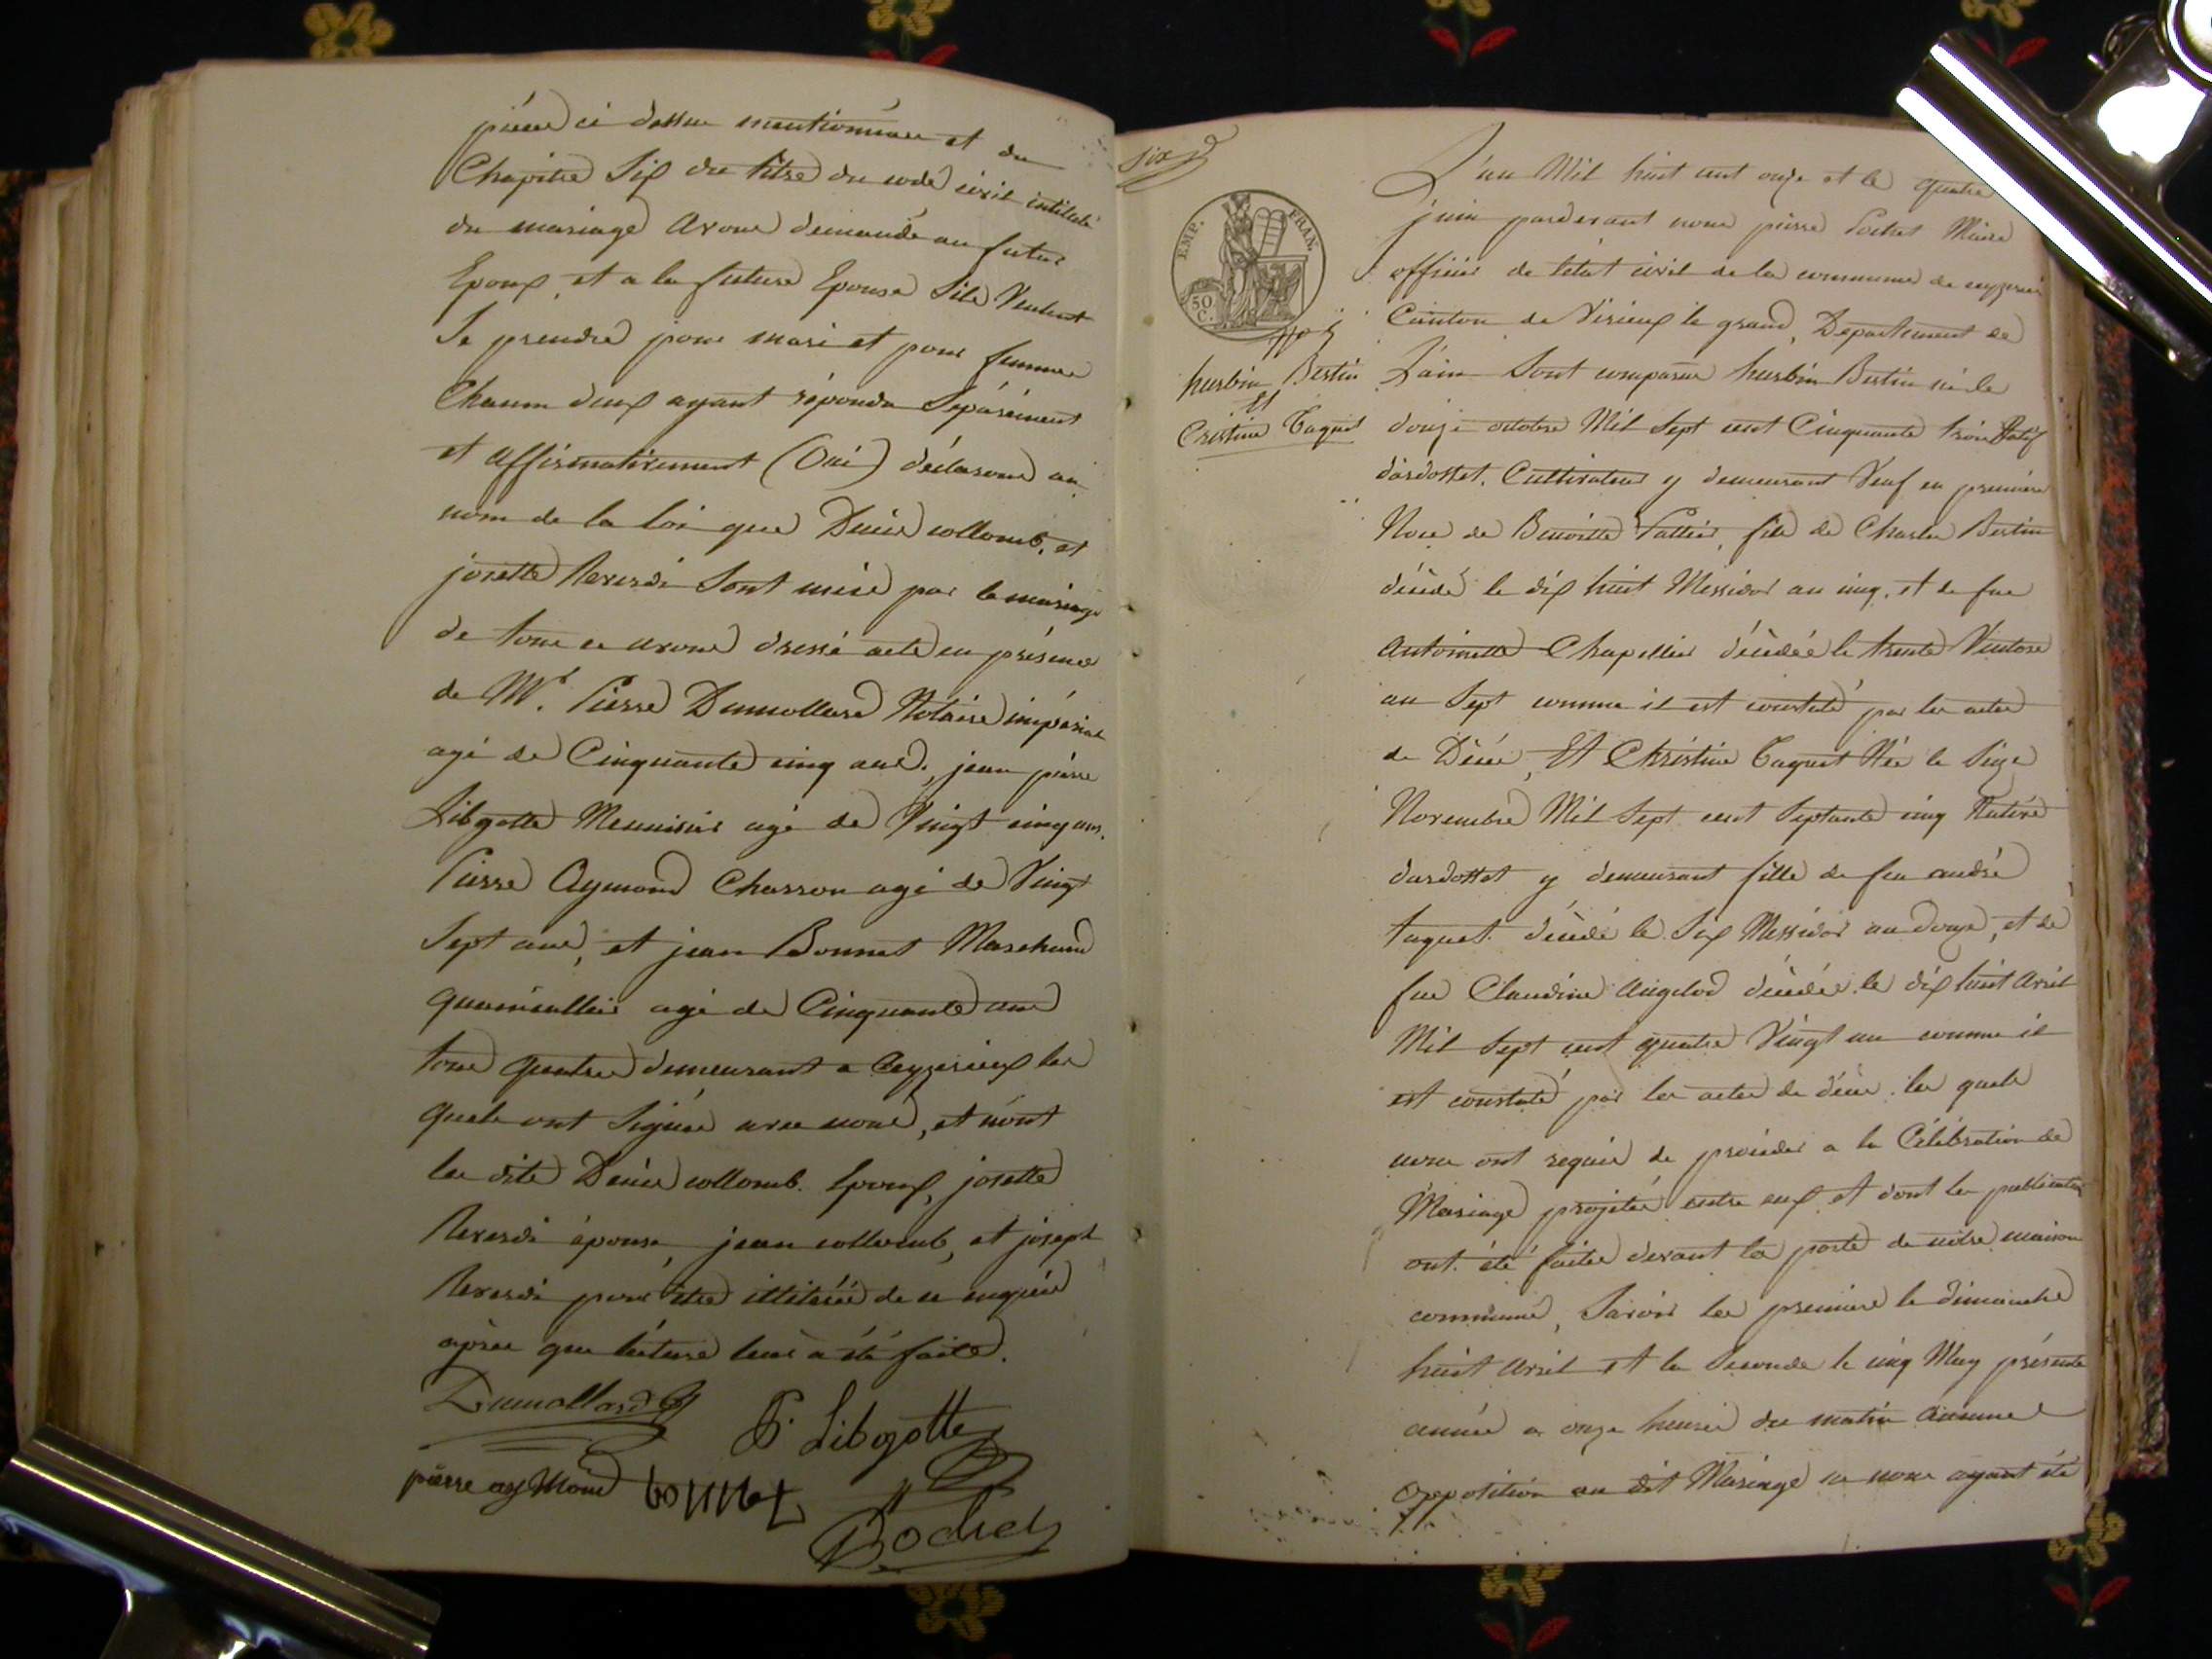 pièces ci dessus mentionnées et du
Chapitre Six du titre du code civil intitulé
du mariage avons demandé au futur
Epoux et a la future Epouse Sils Veulent
Se prendre pour mari et pour femme
Chacun deux ayant répondu Séparément
et affirmativement (Oui) déclarons au
nom de la loi que Denis collomb, et
josette Reverdi Sont unis par le mariage
de tous ce avons dressé acte en présence
de Mr. Pierre Dumollard Notaire impérial
agé de Cinquante cinq ans, jean pierre
Libgotte Menuisier agé de Vingt cinq ans.
Pierre Aymond Charron agé de Vingt
Sept ans, et jean Bonnet Marchand
quincallier agé de Cinquante ans
tous quatre demeurant a Ceyzerieux les
quels ont Signés avec nous, et nont
les dits Denis collomb. Epoux, josette
Reverdi épouse, jean collomb, et joseph
Reverdi pour être illiterés de ce enquis
après que lecture leur a été faite.
Dumollard
P. Libogotte
pierre ayMond bonnet
Bochet
six
EMP. FRAN.
50 C.
No 5
hurbin Bertin
Et
Cristine Taguet
L'an Mil huit cent onze et le quatre
juin pardevant nous pierre Maire
officier de létat civil de la commune de ceyzerieu
Canton de Virieux le grand, Departement de
L'ain Sont comparus hurbin Bertin né le
douze octobre Mil Sept cent Cinquante trois Natif
dardosset. Cultivateur y demeurant Veuf en première
Noce de Benoitte fils de Charles Bertin
décédé le dix huit Messidor an cinq. et de fue
Antoinette Chapellier décédée le trente Ventose
an Sept comme il est constaté par les actes
de Décés, Et Christine Taguet Née le Seize
Novembre Mil Sept cent Septante cinq Native
dardosset y demeurant fille de feu andré
taguet. décédé le Six Messidor an douze, et de
fue Claudine décédée le dix huit avril
Mil Sept cent quatre Vingt un comme il
est constaté par les actes de décés. les quels
nous ont requis de procéder a la Célébration de
Mariage projetée entre eux et dont les publications
ont été faites devant la porte de notre maison
commune, Savoir la premiere le dimanche
huit avril et la Seconde le cinq May présente
année a onze heures du matin aucune
opposition au dit Mariage ne nous ayant été